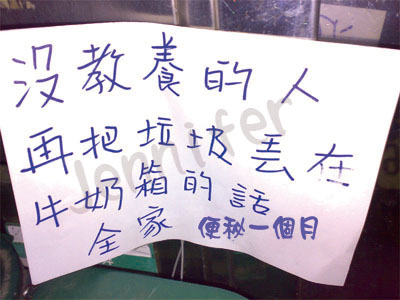 沒教養的人
再把垃圾丟在
牛奶箱的話
全家便秘一個月
Jennifer